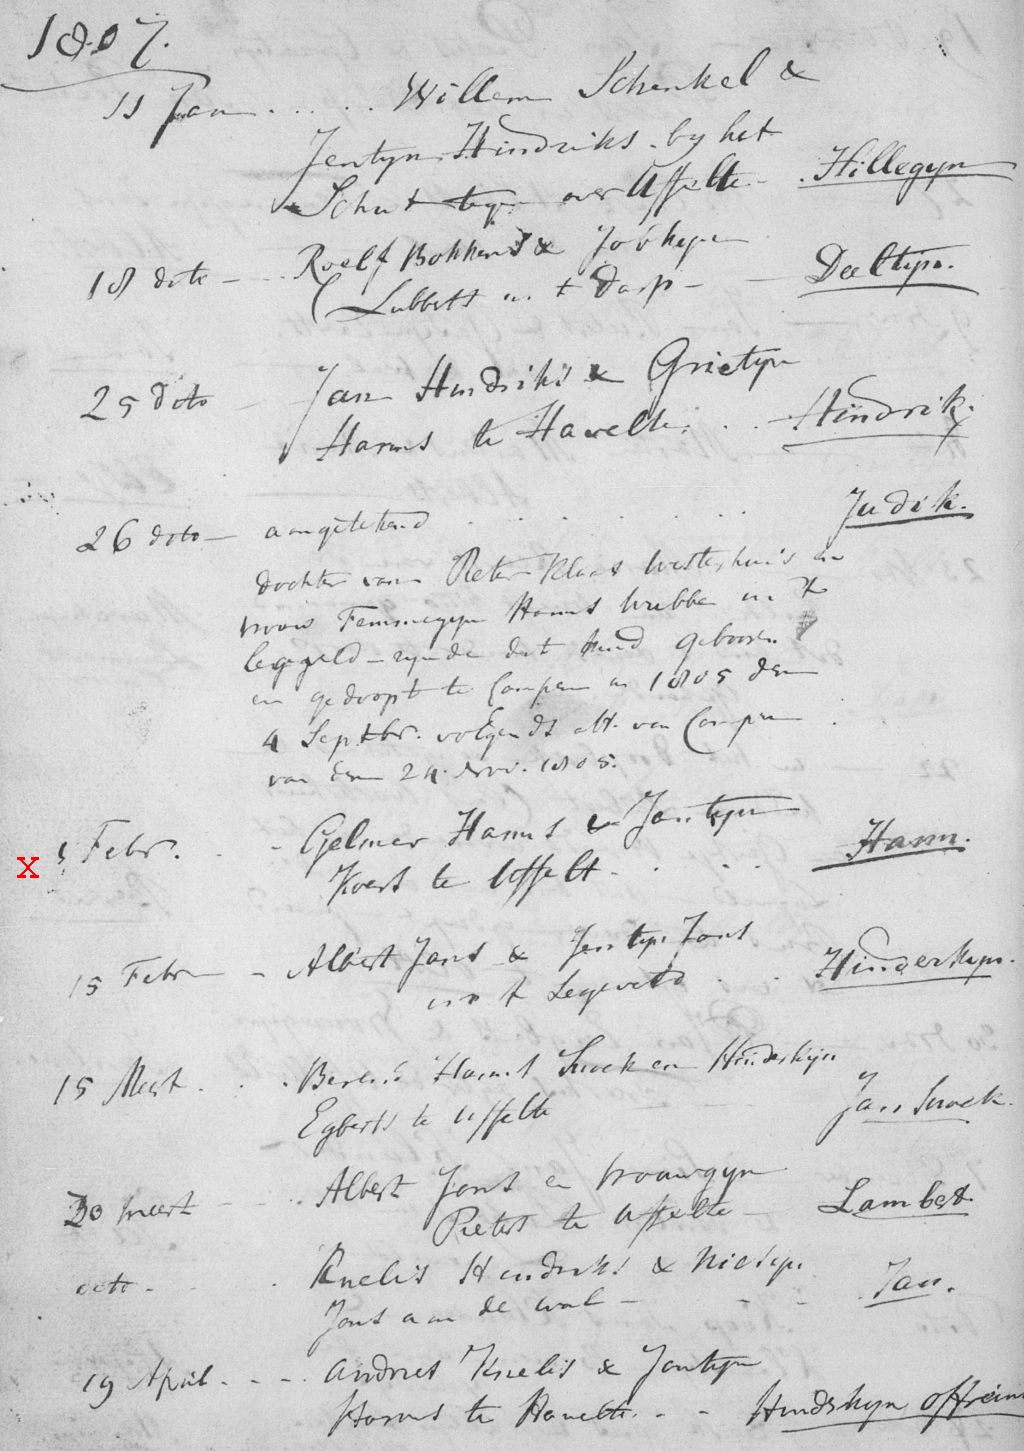 1807.
11 Jan ..... Willem Schenkel &
Jentyn Hindriks by het
Schut tegen over Uffelte - . Hillegyn
18 dito - .. Roelf Bokkens & Jobkeyn
Lubberts in t Dorp - - Deeltyn.
25 dito - Jan Hindriks & Grietyn
Harms te Havelte. .. Hindrik.
26 dito - aangetekend ...... Judik.
dochter van Pieter Klaas Westerhuis en
vrouw Femmegyn Harms Wubben in 't
legeveld - zynde dit kind gebooren
en gedoopt te Campen in 1805 den
4 Septbr. volgends att. van Campen
van den 24 Nov. 1805.
X Febr. . - Gelmer Harms & Jantyn
Koers te Uffelt. . . . Harm.
15 Febr - Albert Jans & Jentyn Jans
in t Legeveld . . Hinderkyn.
15 Meert . . . Berend Harms Snoek en Hinderkyn
Egberts te Uffelte Jan Snoek.
20 meert - . Albert Jans en vrouwgyn
Pieters te Uffelte - Lambert
dito - . Knelis Hendriks & Niesyn
Jans aan de wal - - - Jan.
19 April . - - Andries Knelis & Jantyn
Harms te Havelte. . - Hinderkyn